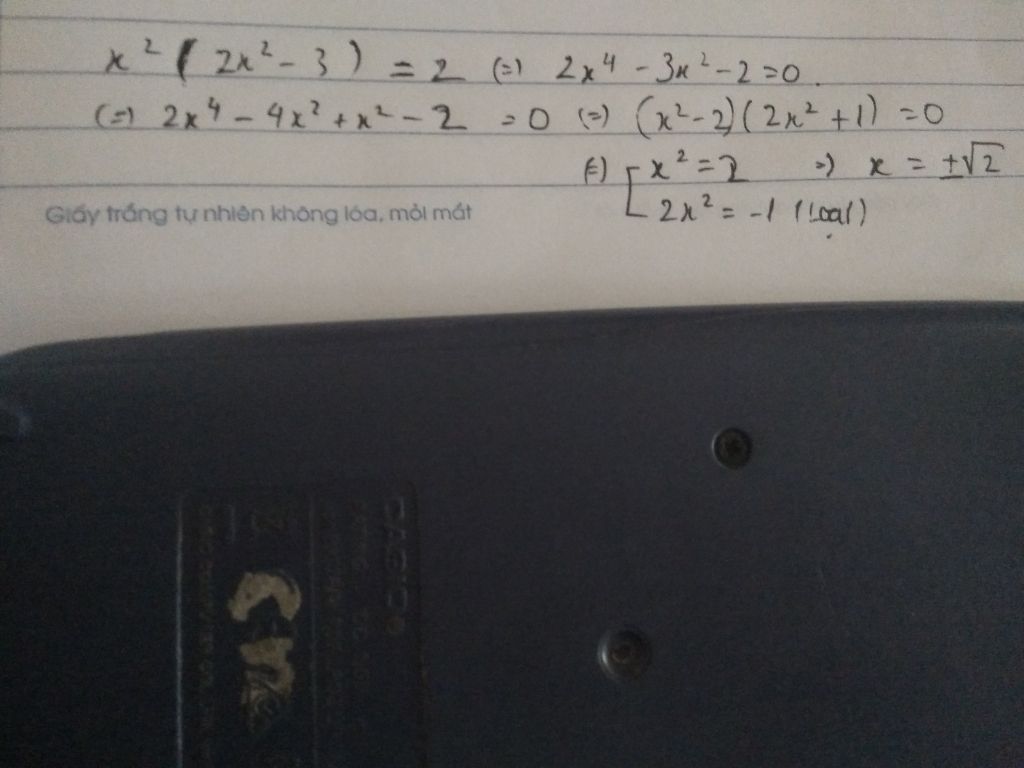 x² ( 2x² - 3 ) = 2 (=) 2x⁴ - 3x² - 2 = 0.
(=) 2x⁴ - 4x² + x² - 2 = 0 (=) (x² - 2)(2x² + 1) = 0
(=) [ x² = 2 => x = ±√2
2x² = -1 (loại)
Giấy trắng tự nhiên không lóa, mỏi mắt
CASIO